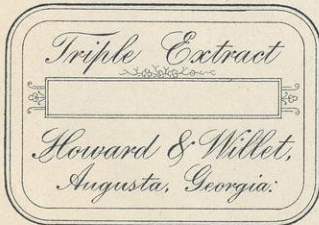 Triple Extract
Howard & Willet,
Augusta, Georgia.